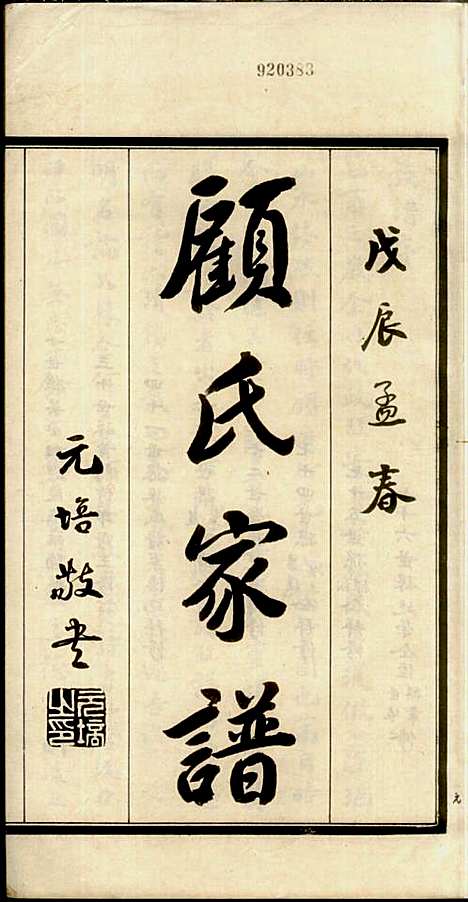 920383
戊辰孟春
顧氏家譜
元培敬書
元培之印
元